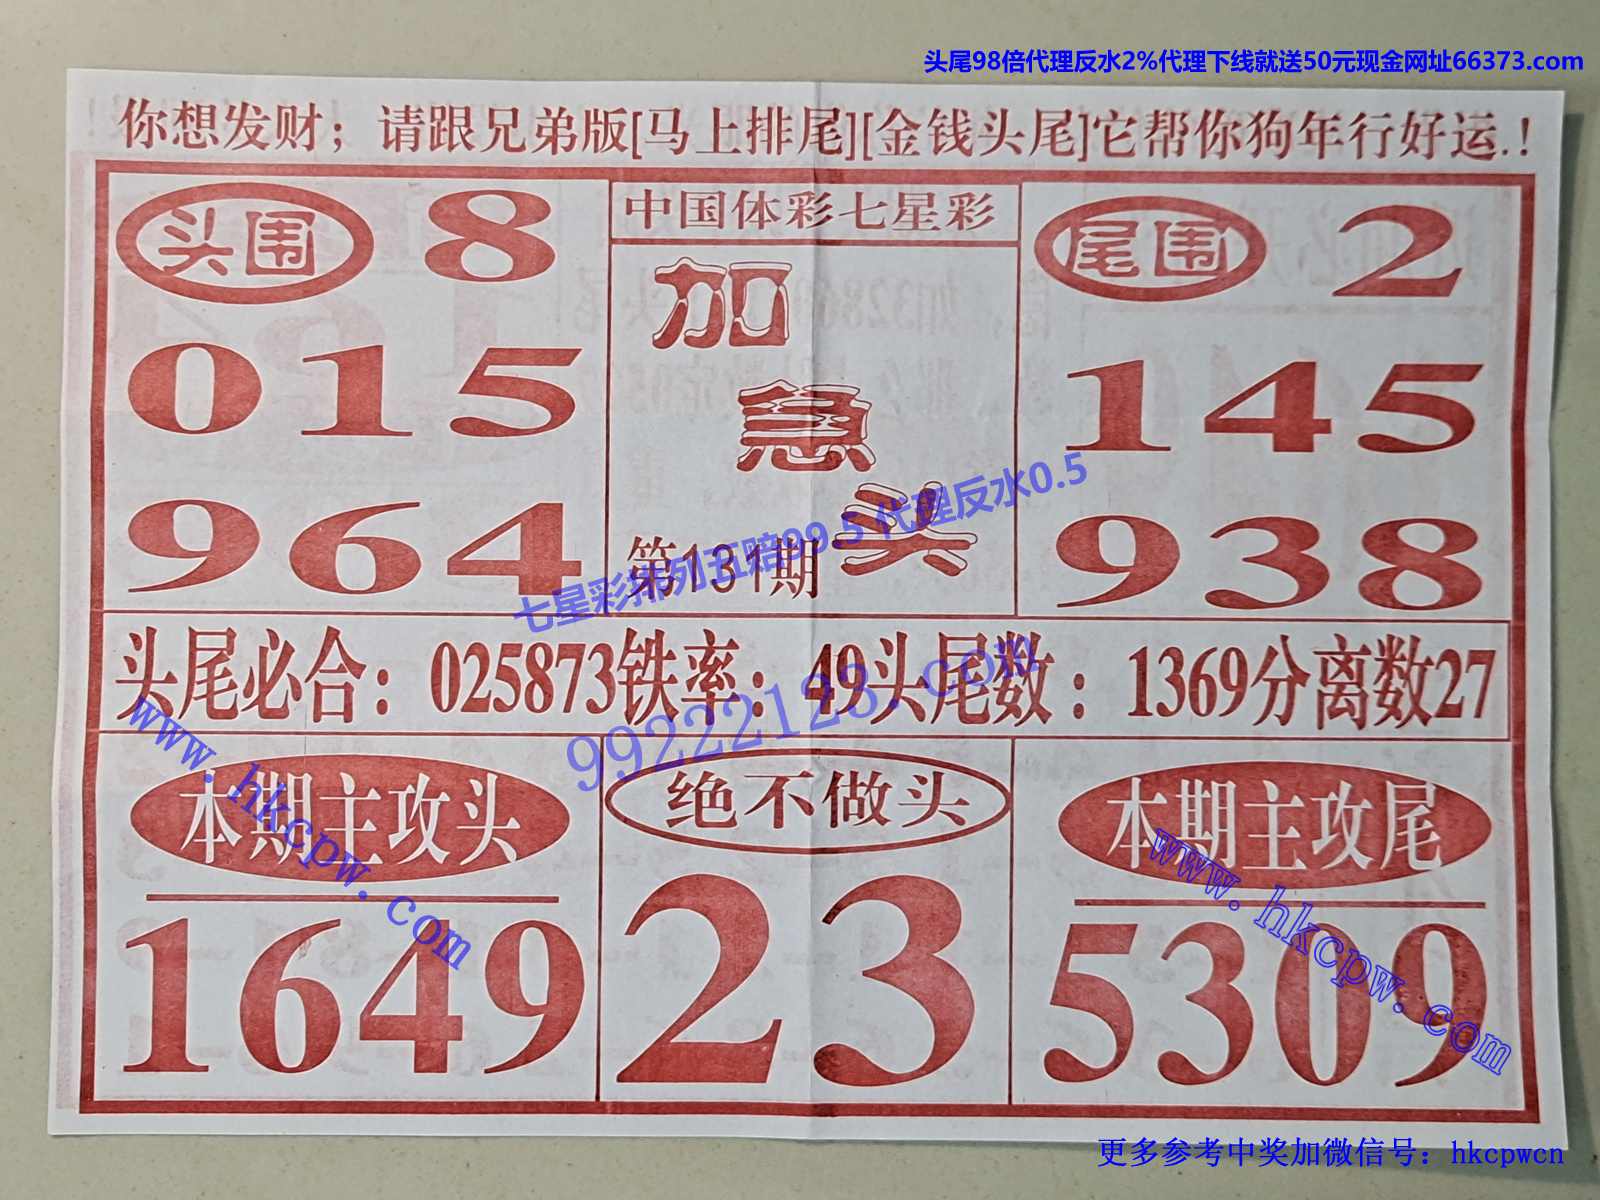 头尾98倍代理反水2%代理下线就送50元现金网址66373.com
你想发财；请跟兄弟版[马上排尾][金钱头尾]它帮你狗年行好运.!
头围 8
015
964
中国体彩七星彩
加
急
头
第131期
尾围 2
145
938
七星彩排列五赔99.5 代理反水0.5
头尾必合：025873铁率：49头尾数：1369分离数27
99222123.com
本期主攻头
1649
www.hkcpw.com
绝不做头
23
本期主攻尾
5309
www.hkcpw.com
更多参考中奖加微信号：hkcpwcn